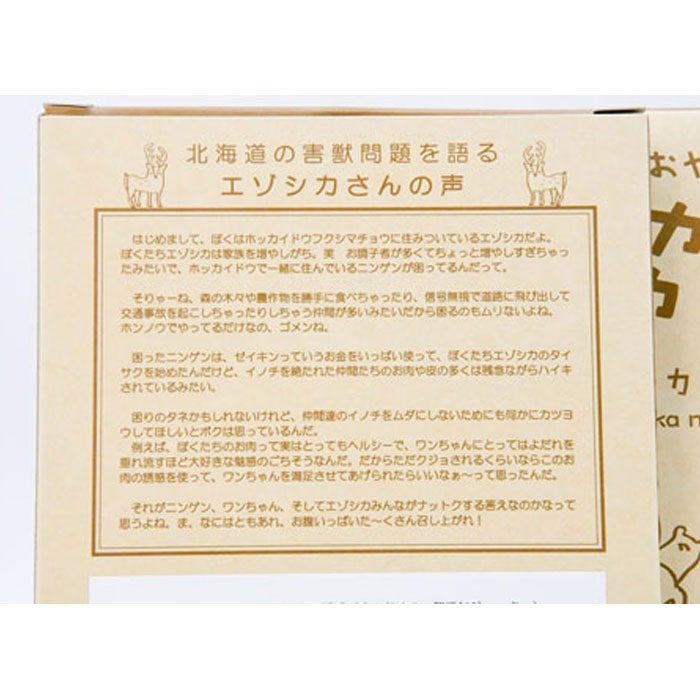 北海道の害獣問題を語る
エゾシカさんの声
はじめまして、ぼくはホッカイドウフクシマチョウに住みついているエゾシカだよ。
ぼくたちエゾシカは家族を増やしがち。笑 お調子者が多くてちょっと増やしすぎちゃっ
たみたいで、ホッカイドウで一緒に住んでいるニンゲンが困ってるんだって。
そりゃーね、森の木々や農作物を勝手に食べちゃったり、信号無視で道路に飛び出して
交通事故を起こしちゃったりしちゃう仲間が多いみたいだから困るのもムリないよね。
ホンノウでやってるだけなの、ゴメンね。
困ったニンゲンは、ゼイキンっていうお金をいっぱい使って、ぼくたちエゾシカのタイ
サクを始めたんだけど、イノチを絶たれた仲間たちのお肉や皮の多くは残念ながらハイキ
されているみたい。
困りのタネかもしれないけれど、仲間達のイノチをムダにしないためにも何かにカツヨ
ウしてほしいとボクは思っているんだ。
例えば、ぼくたちのお肉って実はとってもヘルシーで、ワンちゃんにとってはよだれを
垂れ流すほど大好きな魅惑のごちそうなんだ。だからただクジョされるくらいならこのお
肉の誘惑を使って、ワンちゃんを満足させてあげられたらいいなぁ～って思ったんだ。
それがニンゲン、ワンちゃん、そしてエゾシカみんながナットクする答えなのかなって
思うよね。ま、なにはともあれ、お腹いっぱいた～くさん召し上がれ！
おや
カ
カ
カ
ka n